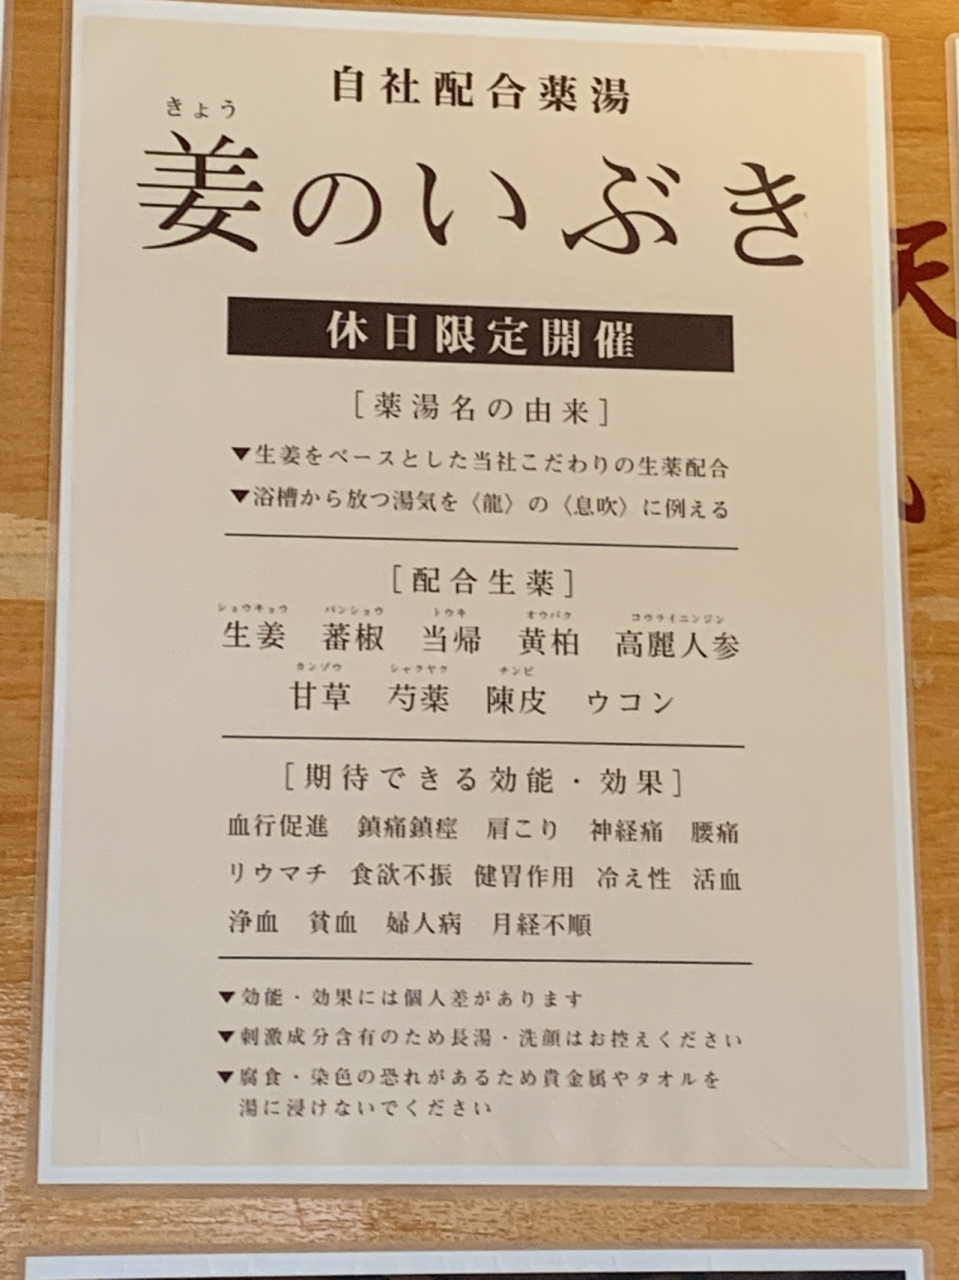 自社配合薬湯
きょう
姜のいぶき
休日限定開催
［薬湯名の由来］
▼生姜をベースとした当社こだわりの生薬配合
▼浴槽から放つ湯気を〈龍〉の〈息吹〉に例える
［配合生薬］
ショウキョウ バンショウ トウキ オウバク コウライニンジン
生姜 蕃椒 当帰 黄柏 高麗人参
カンゾウ シャクヤク チンピ
甘草 芍薬 陳皮 ウコン
［期待できる効能・効果］
血行促進 鎮痛鎮痙 肩こり 神経痛 腰痛
リウマチ 食欲不振 健胃作用 冷え性 活血
浄血 貧血 婦人病 月経不順
▼効能・効果には個人差があります
▼刺激成分含有のため長湯・洗顔はお控えください
▼腐食・染色の恐れがあるため貴金属やタオルを
湯に浸けないでください